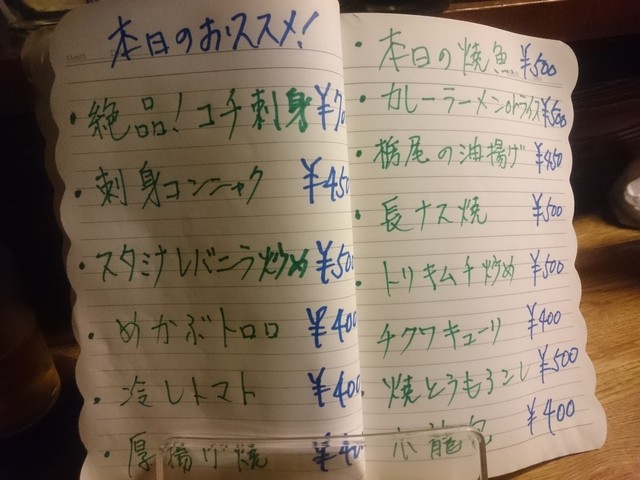 本日のおススメ!
・絶品!コチ刺身 ¥70
・刺身コンニャク ¥450
・スタミナレバニラ炒め ¥500
・めかぶトロロ ¥400
・冷しトマト ¥400
・厚揚げ焼 ¥40
・本日の焼魚 ¥500
・カレーラーメンorライス ¥500
・栃尾の油揚げ ¥450
・長ナス焼 ¥500
・トリキムチ炒め ¥500
チクワキューリ ¥400
・焼とうもろこし ¥500
小龍包 ¥400